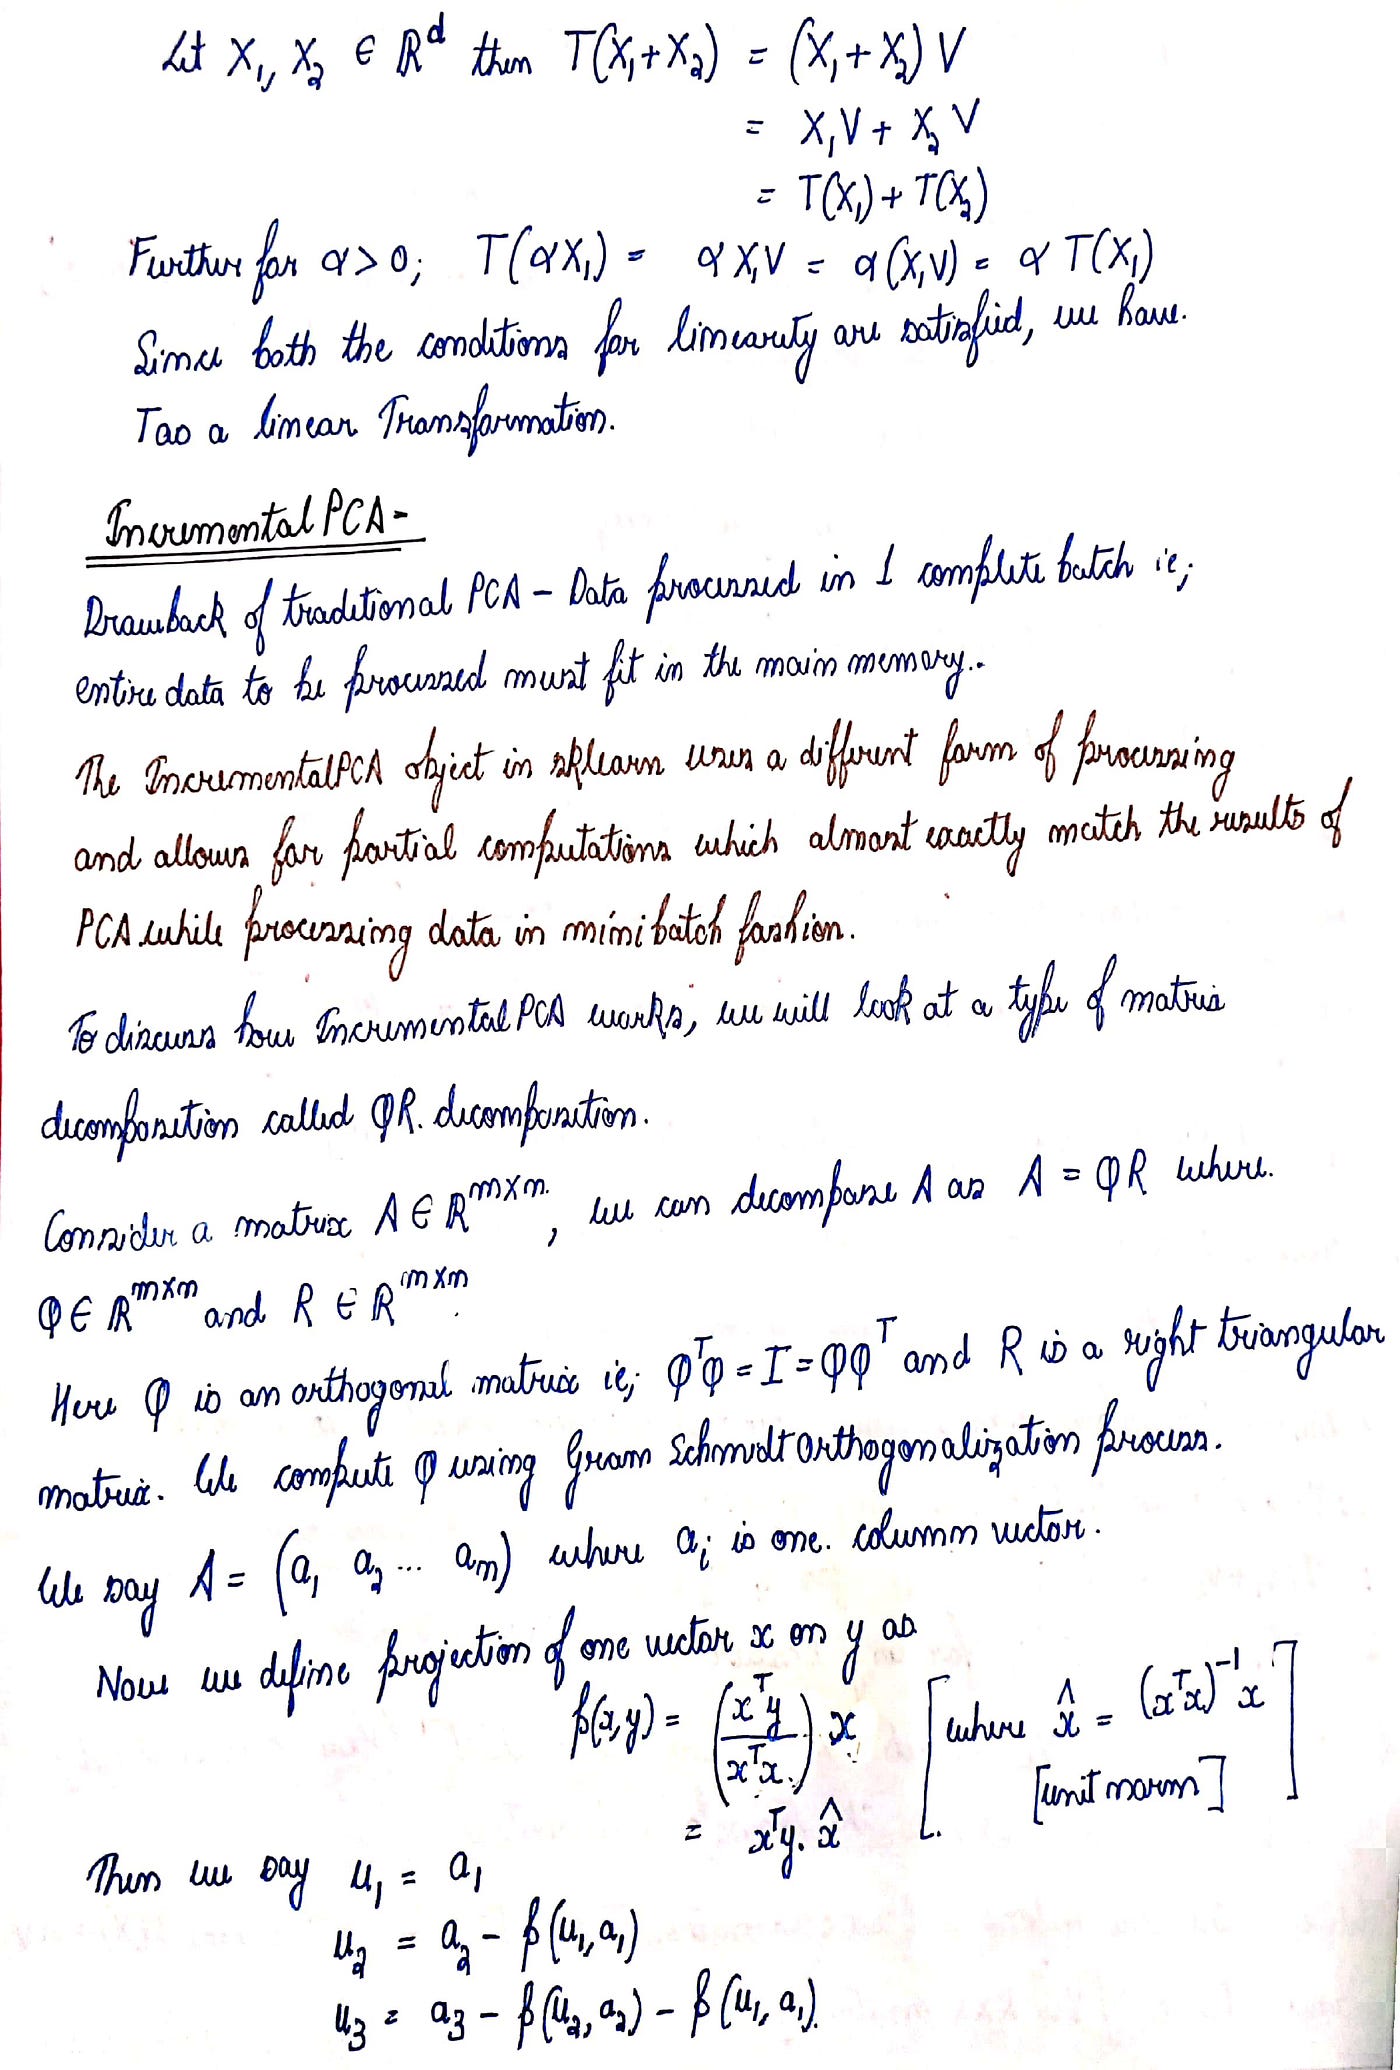 Let X₁, X₂ ∈ ℝᵈ then T(X₁+X₂) = (X₁+X₂)V
= X₁V + X₂V
= T(X₁) + T(X₂)
Further for α>0; T(αX₁) = αX₁V = α(X₁V) = αT(X₁)
Since both the conditions for linearity are satisfied, we have.
T as a linear Transformation.
Incremental PCA -
Drawback of traditional PCA - Data processed in 1 complete batch ie;
entire data to be processed must fit in the main memory..
The IncrementalPCA object in sklearn uses a different form of processing
and allows for partial computations which almost exactly match the results of
PCA while processing data in mini batch fashion.
To discuss how Incremental PCA works, we will look at a type of matrix
decomposition called QR. decomposition.
Consider a matrix A ∈ ℝᵐˣⁿ, we can decompose A as A = QR where.
Q ∈ ℝᵐˣⁿ and R ∈ ℝⁿˣⁿ.
Here Q is an orthogonal matrix ie; QᵀQ = I = QQᵀ and R is a right triangular
matrix. We compute Q using Gram Schmidt Orthogonalization process.
We say A = (a₁ a₂ ... aₙ) where aᵢ is one. column vector.
Now we define projection of one vector x on y as
p(x,y) = (xᵀy / xᵀx) x [where x̂ = (xᵀx)⁻¹x
= xᵀy. x̂ [unit norm]]
Then we say u₁ = a₁
u₂ = a₂ - p(u₁,a₁)
u₃ = a₃ - p(u₂,a₂) - p(u₁,a₁).